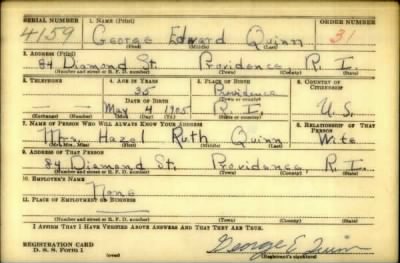 SERIAL NUMBER 1. NAME (Print) ORDER NUMBER
4159 George Edward Quinn 31
(First) (Middle) (Last)
2. ADDRESS (Print)
84 Diamond St. Providence, R. I.
(Number and street or R. F. D. number) (Town) (County) (State)
3. TELEPHONE 4. AGE IN YEARS 5. PLACE OF BIRTH 6. COUNTRY OF CITIZENSHIP
35 Providence
DATE OF BIRTH (Town or county)
May 4 1905 R. I. U. S.
(Exchange) (Number) (Mo.) (Day) (Yr.) (State or country)
7. NAME OF PERSON WHO WILL ALWAYS KNOW YOUR ADDRESS 8. RELATIONSHIP OF THAT PERSON
Mrs. Hazel Ruth Quinn Wife
(Mr., Mrs., Miss) (First) (Middle) (Last)
9. ADDRESS OF THAT PERSON
84 Diamond St. Providence, R. I.
(Number and street or R. F. D. number) (Town) (County) (State)
10. EMPLOYER'S NAME
None
11. PLACE OF EMPLOYMENT OR BUSINESS
(Number and street or R. F. D. number) (Town) (County) (State)
I AFFIRM THAT I HAVE VERIFIED ABOVE ANSWERS AND THAT THEY ARE TRUE.
REGISTRATION CARD
D. S. S. Form 1 (over) George E. Quinn
(Registrant's signature)